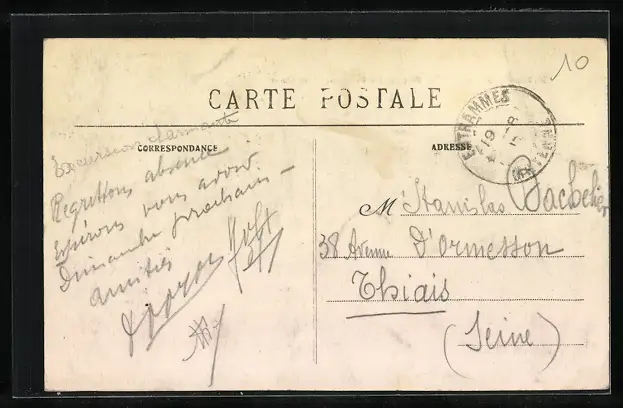 10
CARTE POSTALE
ENTRAMMES
19
MAYENNE
CORRESPONDANCE
ADRESSE
Excursion charmante
Regrettons absence
Espérons vous avoir
Dimanche prochain -
amitiés
M Stanislas Bachelier
38 Avenue D'Ormesson
Thiais
(Seine)